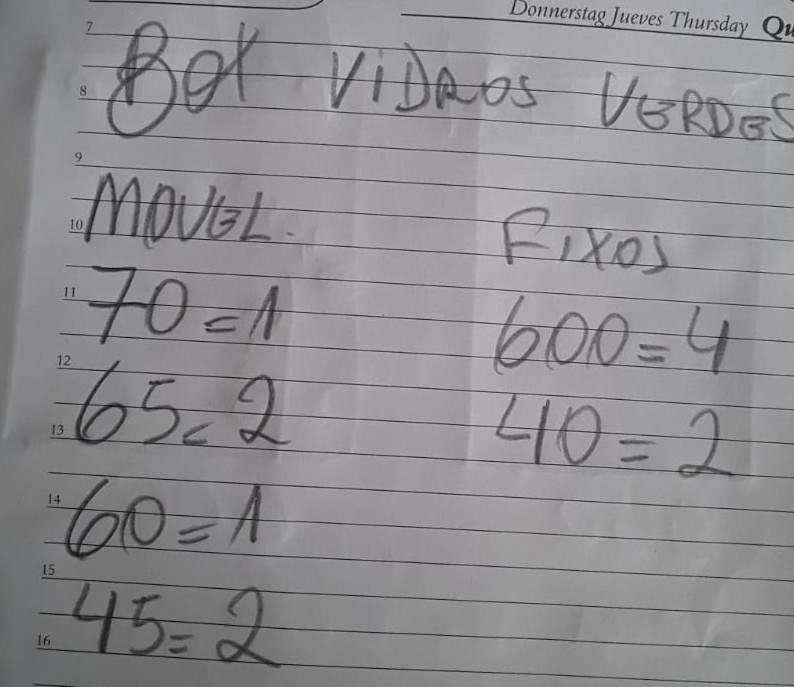 Donnerstag Jueves Thursday Qu
7
8
BOX VIDROS VERDES
9
MOVEL. FIXOS
10
11
70=1 600=4
12
65=2 40=2
13
14
60=1
15
45=2
16